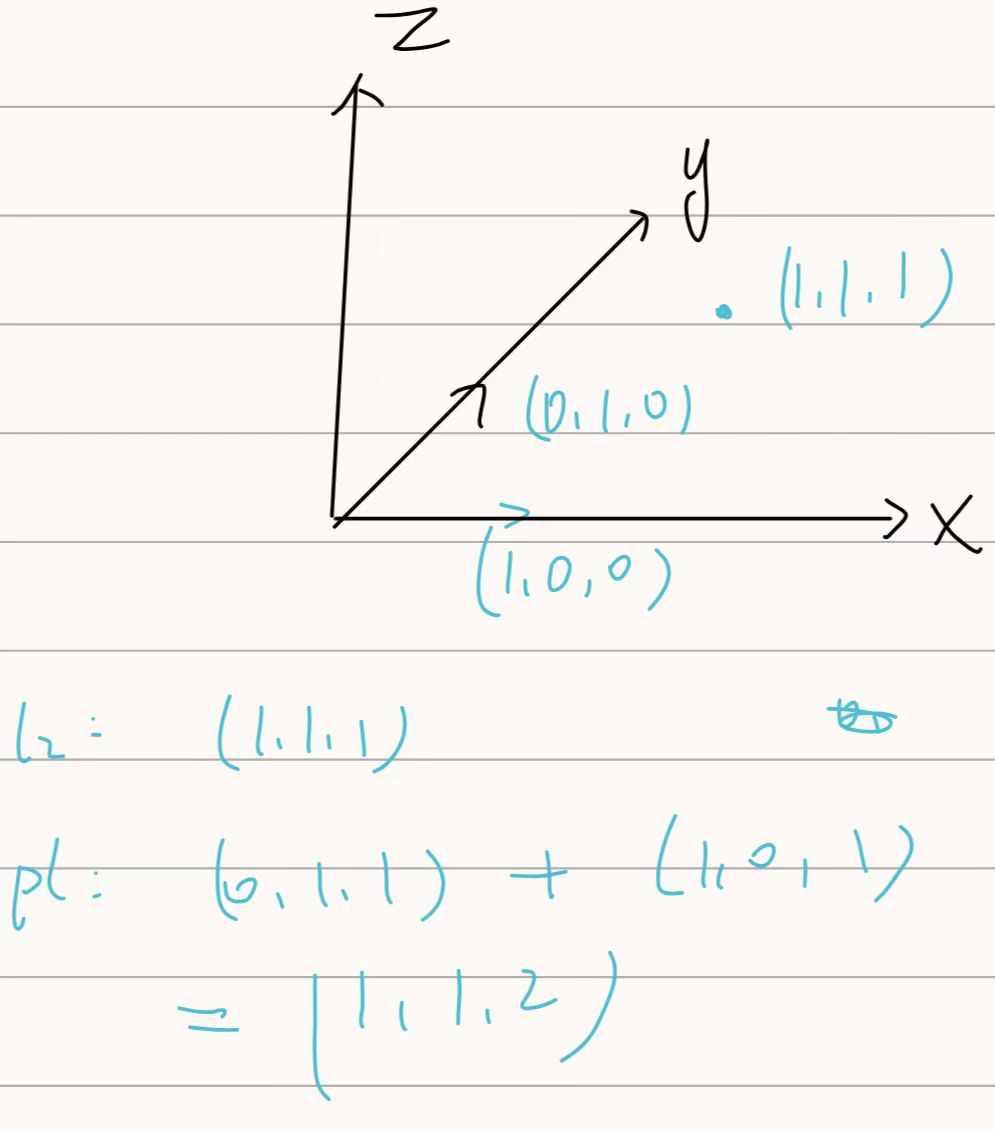 z
y
(1,1,1)
(0,1,0)
x
(1,0,0)
l₂: (1,1,1)
pl: (0,1,1) + (1,0,1)
= (1,1,2)